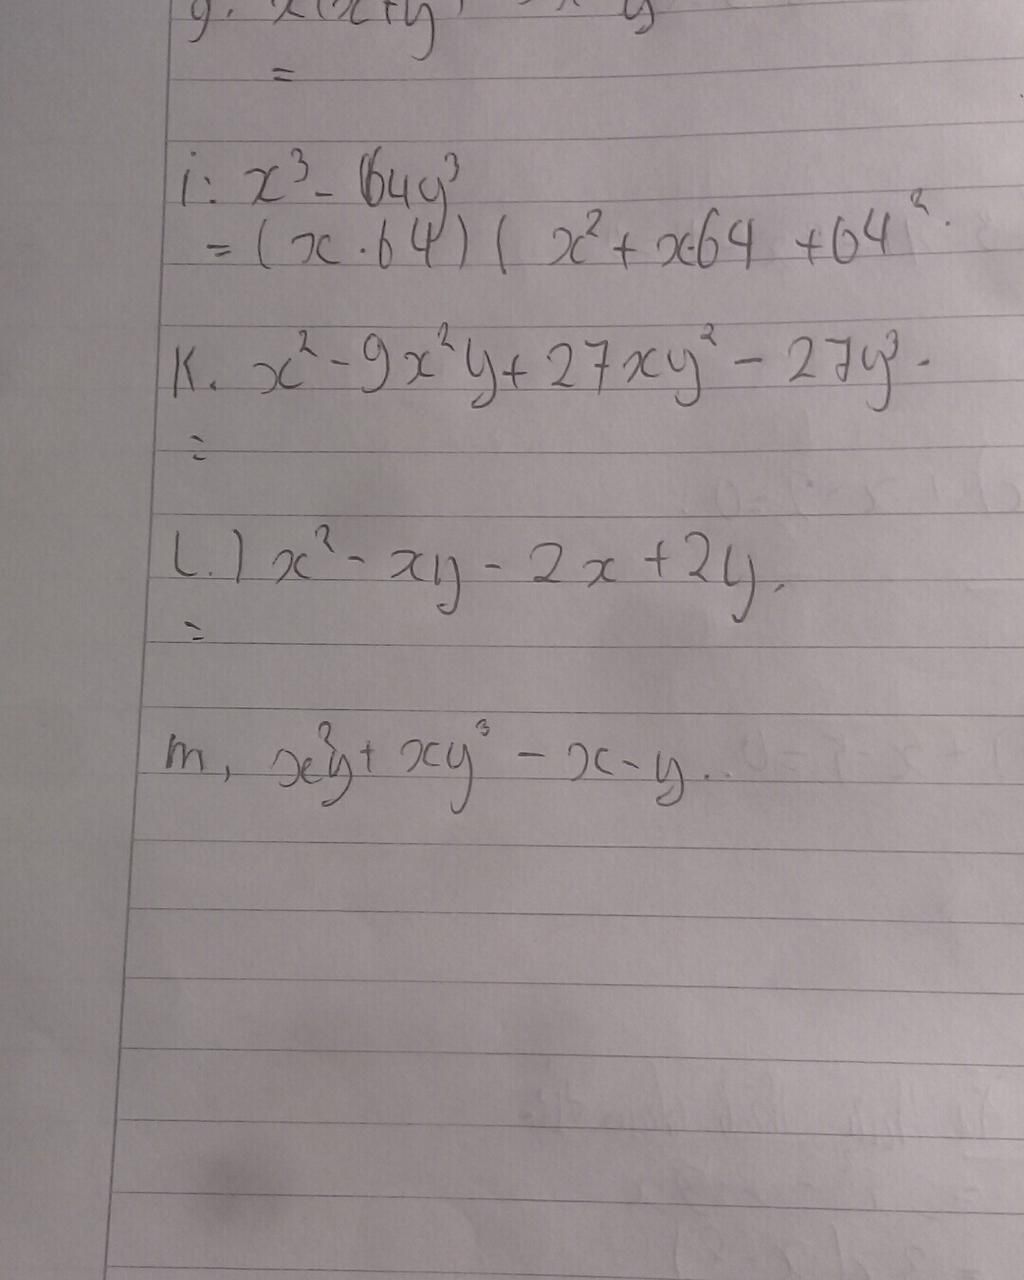 g. x(x+y)
=
i: x³ - 64y³
= (x . 64) ( x² + x.64 + 64².
K. x² - 9x²y + 27xy² - 27y³.
=
L.) x² - xy - 2x + 2y.
=
m, x³y + xy³ - x - y..